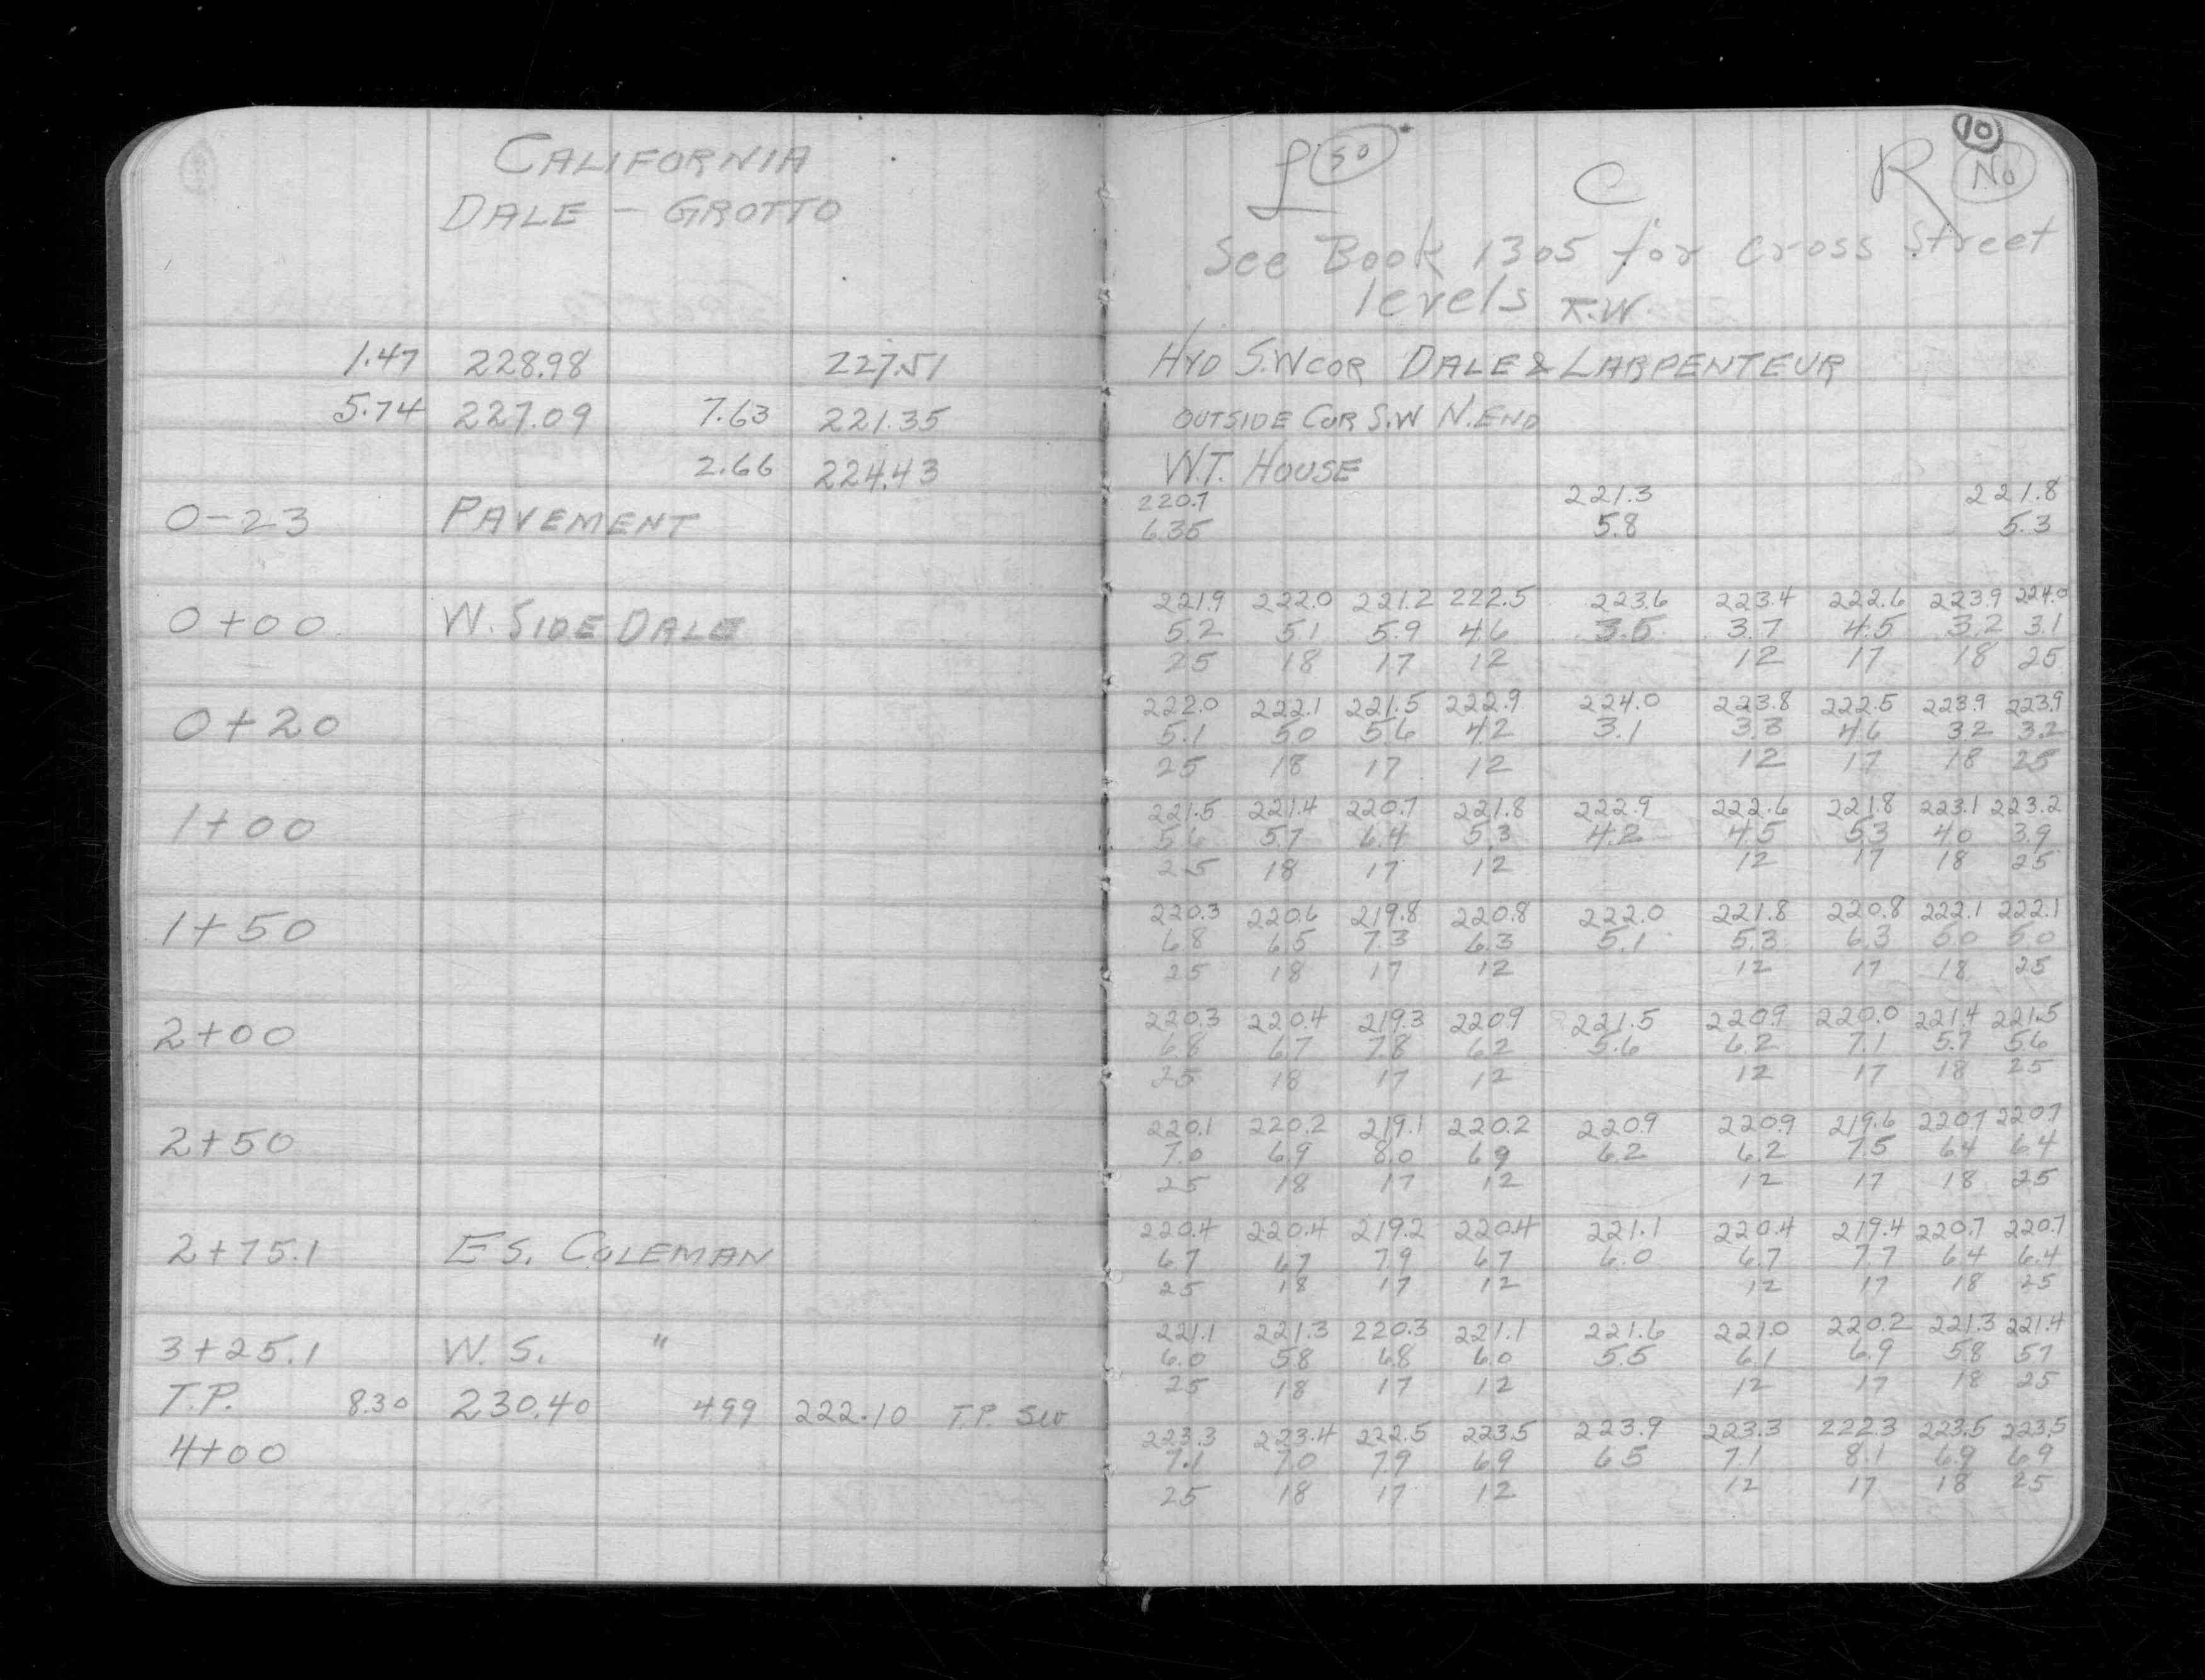 CALIFORNIA
DALE - GROTTO
1.47 228.98 227.51
5.74 227.09 7.63 221.35
2.66 224.43
0-23 PAVEMENT
0+00 W. SIDE DALE
0+20
1+00
1+50
2+00
2+50
2+75.1 E S. COLEMAN
3+25.1 W. S. "
T.P. 8.30 230.40 4.99 222.10 T.P. SW
4+00
10
L So C R No
See Book 1305 for cross street
levels K.W.
HYD S.W COR DALE & LARPENTEUR
OUTSIDE COR S.W N. END
W.T. HOUSE
220.7 221.3 221.8
6.35 5.8 5.3
221.9 222.0 221.2 222.5 223.6 223.4 222.6 223.9 224.0
5.2 5.1 5.9 4.6 3.5 3.7 4.5 3.2 3.1
25 18 17 12 12 17 18 25
222.0 222.1 221.5 222.9 224.0 223.8 222.5 223.9 223.9
5.1 5.0 5.6 4.2 3.1 3.3 4.6 3.2 3.2
25 18 17 12 12 17 18 25
221.5 221.4 220.7 221.8 222.9 222.6 221.8 223.1 223.2
5.6 5.7 6.4 5.3 4.2 4.5 5.3 4.0 3.9
25 18 17 12 12 17 18 25
220.3 220.6 219.8 220.8 222.0 221.8 220.8 222.1 222.1
6.8 6.5 7.3 6.3 5.1 5.3 6.3 5.0 5.0
25 18 17 12 12 17 18 25
220.3 220.4 219.3 220.9 221.5 220.9 220.0 221.4 221.5
6.8 6.7 7.8 6.2 5.6 6.2 7.1 5.7 5.6
25 18 17 12 12 17 18 25
220.1 220.2 219.1 220.2 220.9 220.9 219.6 220.7 220.7
7.0 6.9 8.0 6.9 6.2 6.2 7.5 6.4 6.4
25 18 17 12 12 17 18 25
220.4 220.4 219.2 220.4 221.1 220.4 219.4 220.7 220.7
6.7 6.7 7.9 6.7 6.0 6.7 7.7 6.4 6.4
25 18 17 12 12 17 18 25
221.1 221.3 220.3 221.1 221.6 221.0 220.2 221.3 221.4
6.0 5.8 6.8 6.0 5.5 6.1 6.9 5.8 5.7
25 18 17 12 12 17 18 25
223.3 223.4 222.5 223.5 223.9 223.3 222.3 223.5 223.5
7.1 7.0 7.9 6.9 6.5 7.1 8.1 6.9 6.9
25 18 17 12 12 17 18 25